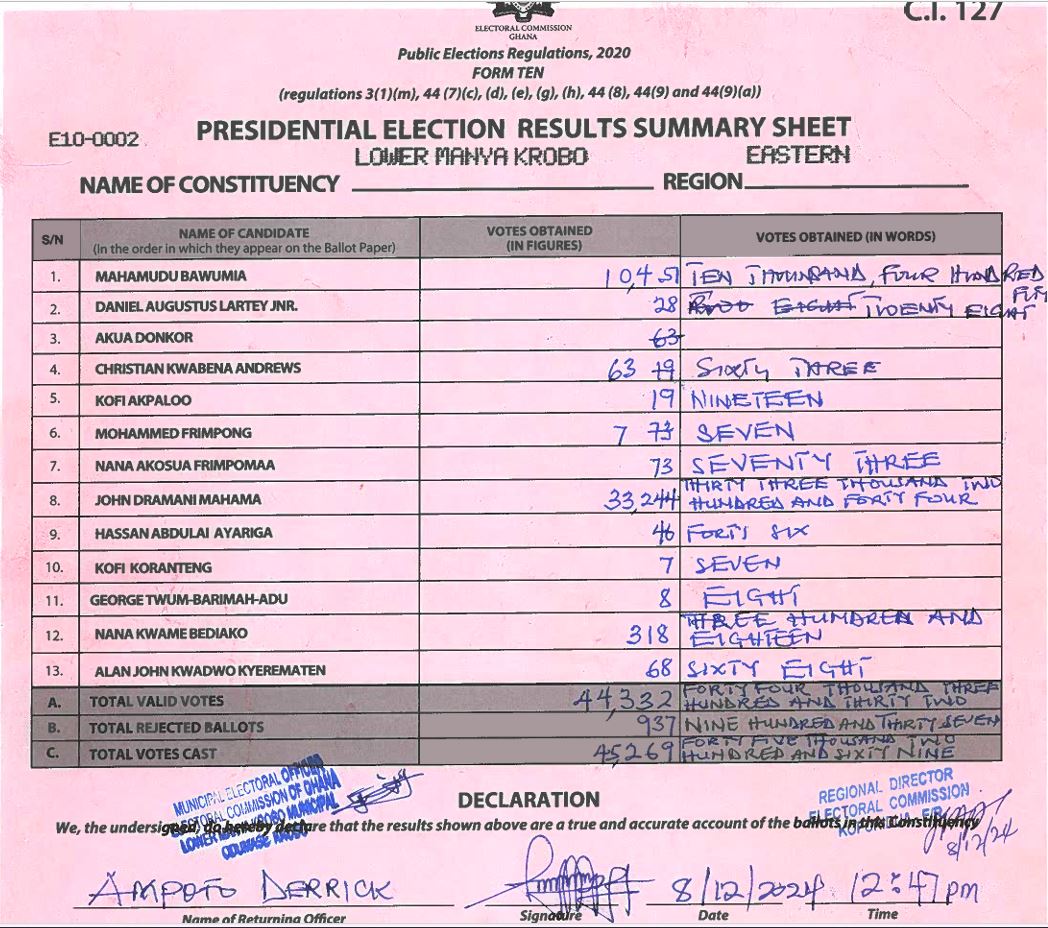 C.I. 127
ELECTORAL COMMISSION
GHANA
Public Elections Regulations, 2020
FORM TEN
(regulations 3(1)(m), 44 (7)(c), (d), (e), (g), (h), 44 (8), 44(9) and 44(9)(a))
E10-0002
PRESIDENTIAL ELECTION RESULTS SUMMARY SHEET
LOWER MANYA KROBO EASTERN
NAME OF CONSTITUENCY REGION
S/N NAME OF CANDIDATE (In the order in which they appear on the Ballot Paper) VOTES OBTAINED (IN FIGURES) VOTES OBTAINED (IN WORDS)
1. MAHAMUDU BAWUMIA 10,451 TEN THOUNSAND, FOUR HUNDRED
2. DANIEL AUGUSTUS LARTEY JNR. 28 EIGHT TWENTY EIGHT
3. AKUA DONKOR 63
4. CHRISTIAN KWABENA ANDREWS 63 19 SIXTY THREE
5. KOFI AKPALOO 19 NINETEEN
6. MOHAMMED FRIMPONG 7 73 SEVEN
7. NANA AKOSUA FRIMPOMAA 73 SEVENTY THREE
8. JOHN DRAMANI MAHAMA 33,244 THIRTY THREE THOUSAND TWO HUNDRED AND FORTY FOUR
9. HASSAN ABDULAI AYARIGA 46 FORTY SIX
10. KOFI KORANTENG 7 SEVEN
11. GEORGE TWUM-BARIMAH-ADU 8 EIGHT
12. NANA KWAME BEDIAKO 318 THREE HUNDRED AND EIGHTEEN
13. ALAN JOHN KWADWO KYEREMATEN 68 SIXTY EIGHT
A. TOTAL VALID VOTES 44,332 FORTY FOUR THOUSAND THREE HUNDRED AND THIRTY TWO
B. TOTAL REJECTED BALLOTS 937 NINE HUNDRED AND THIRTY SEVEN
C. TOTAL VOTES CAST 45,269 FORTY FIVE THOUSAND TWO HUNDRED AND SIXTY NINE
MUNICIPAL ELECTORAL OFFICER
ELECTORAL COMMISSION OF GHANA
LOWER MANYA KROBO MUNICIPAL
ODUMASE KROBO
REGIONAL DIRECTOR
ELECTORAL COMMISSION
KOFORIDUA E/R
8/12/24
DECLARATION
We, the undersigned, do hereby declare that the results shown above are a true and accurate account of the ballots in this Constituency
AMPOTO DERRICK 8/12/2024 12:47pm
Name of Returning Officer Signature Date Time